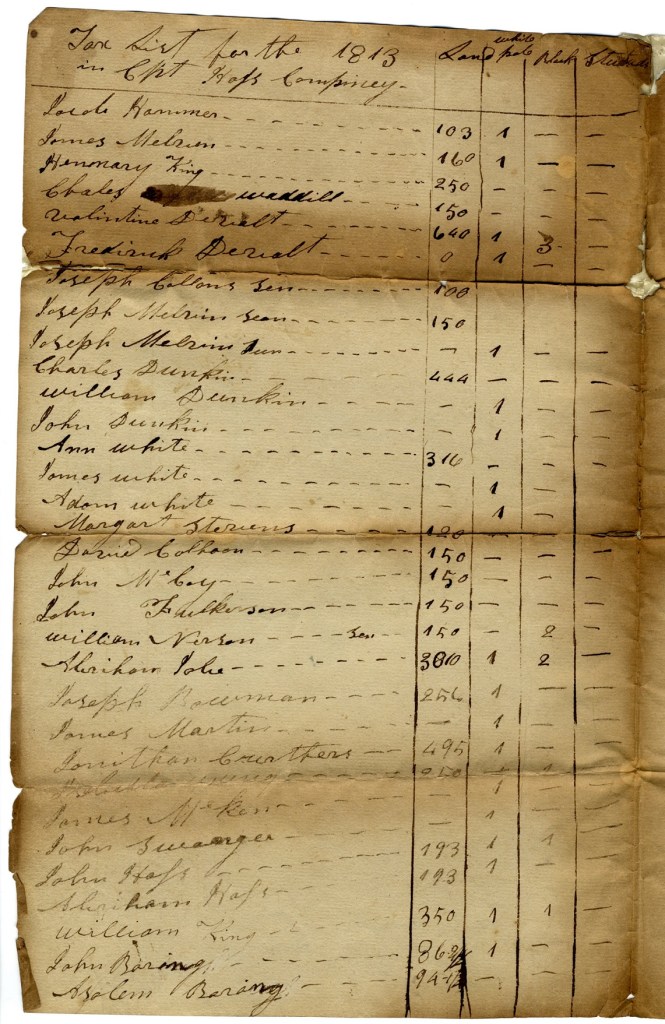 Tax List for the 1813 Land white pole Black Studs
in Cpt Hofs Compiney -
Jacob Hammer - - - 103 1 - -
James Melvin - - - 160 1 - -
Hennary King - - - 250 - - -
Chales waddill - - - 150 - - -
Valintine Devalt 640 1 3 -
Fredirick Devalt - - - 0 1 - -
Joseph Collons sen - - - 100
Joseph Melvin seen - - - 150
Joseph Melvin Jun - - - - 1 - -
Charles Dunkin - - - 444 - - -
william Dunkin - - - - 1 - -
John Dunkin - - - - 1 - -
Ann white - - - 316 - - -
James white - - - - 1 - -
Adam white - - - - 1 - -
Margart Stevens - - - 120 - - -
David Colhoon - - - 150 - - -
John McCoy - - - 150 - - -
John Fulkerson - - - 150 - - -
william Nerson - - - sen 150 - 2 -
Abriham Jobe - - - 300 1 2 -
Joseph Bowman - - - 256 1 - -
James Martin - - - - 1 -
Jonithan Cruthers - - 495 1 -
250 - 1
James McKen - - - - 1 -
John Swanger - - - - 1 -
John Hofs - - - 193 1 1 -
Abriham Hofs - - - 193 1 -
william King - - - 350 1 1 -
John Boring - - - 862 1 - -
Asolem Boring - - - 94 - -